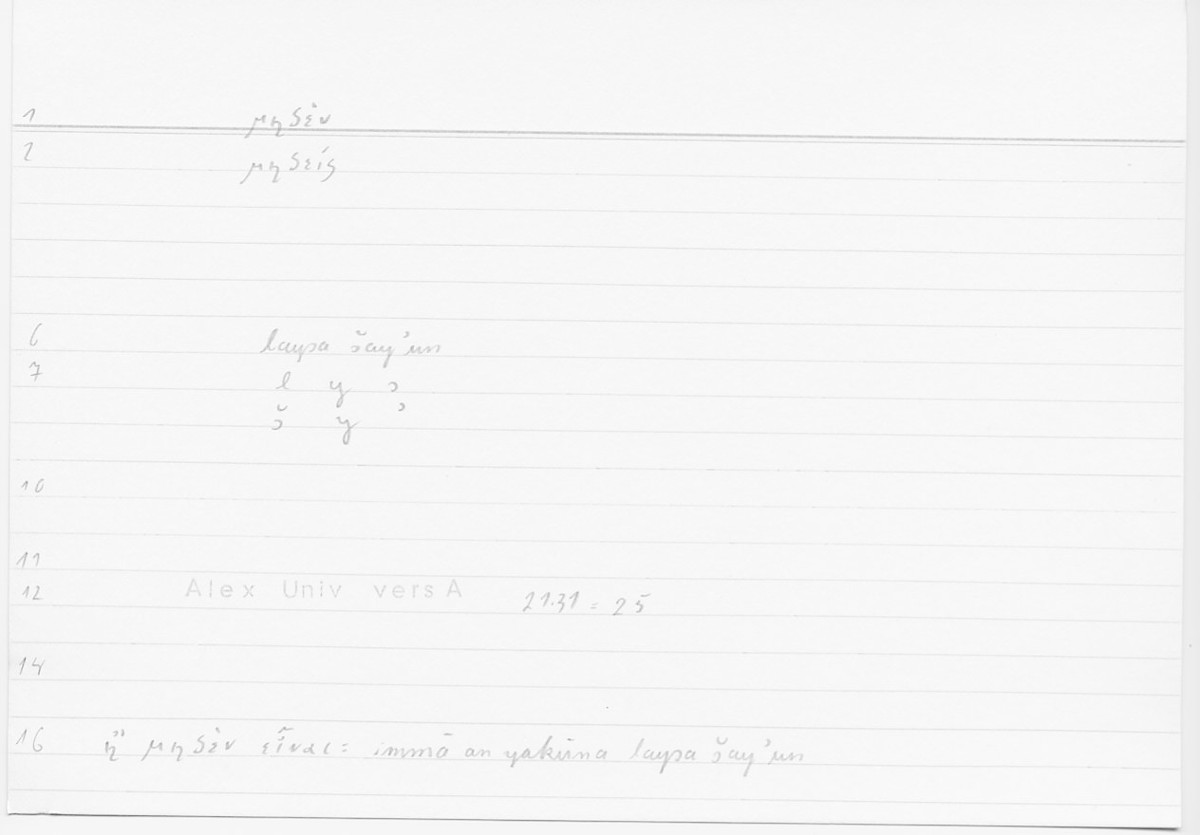 1 μηδὲν
2 μηδείς
6 laysa šayʾun
7 l y s
š y ʾ
10
11
12 Alex Univ vers A 21.31 = 25
14
16 ἢ μηδὲν εἶναι: immā an yakūna laysa šayʾun